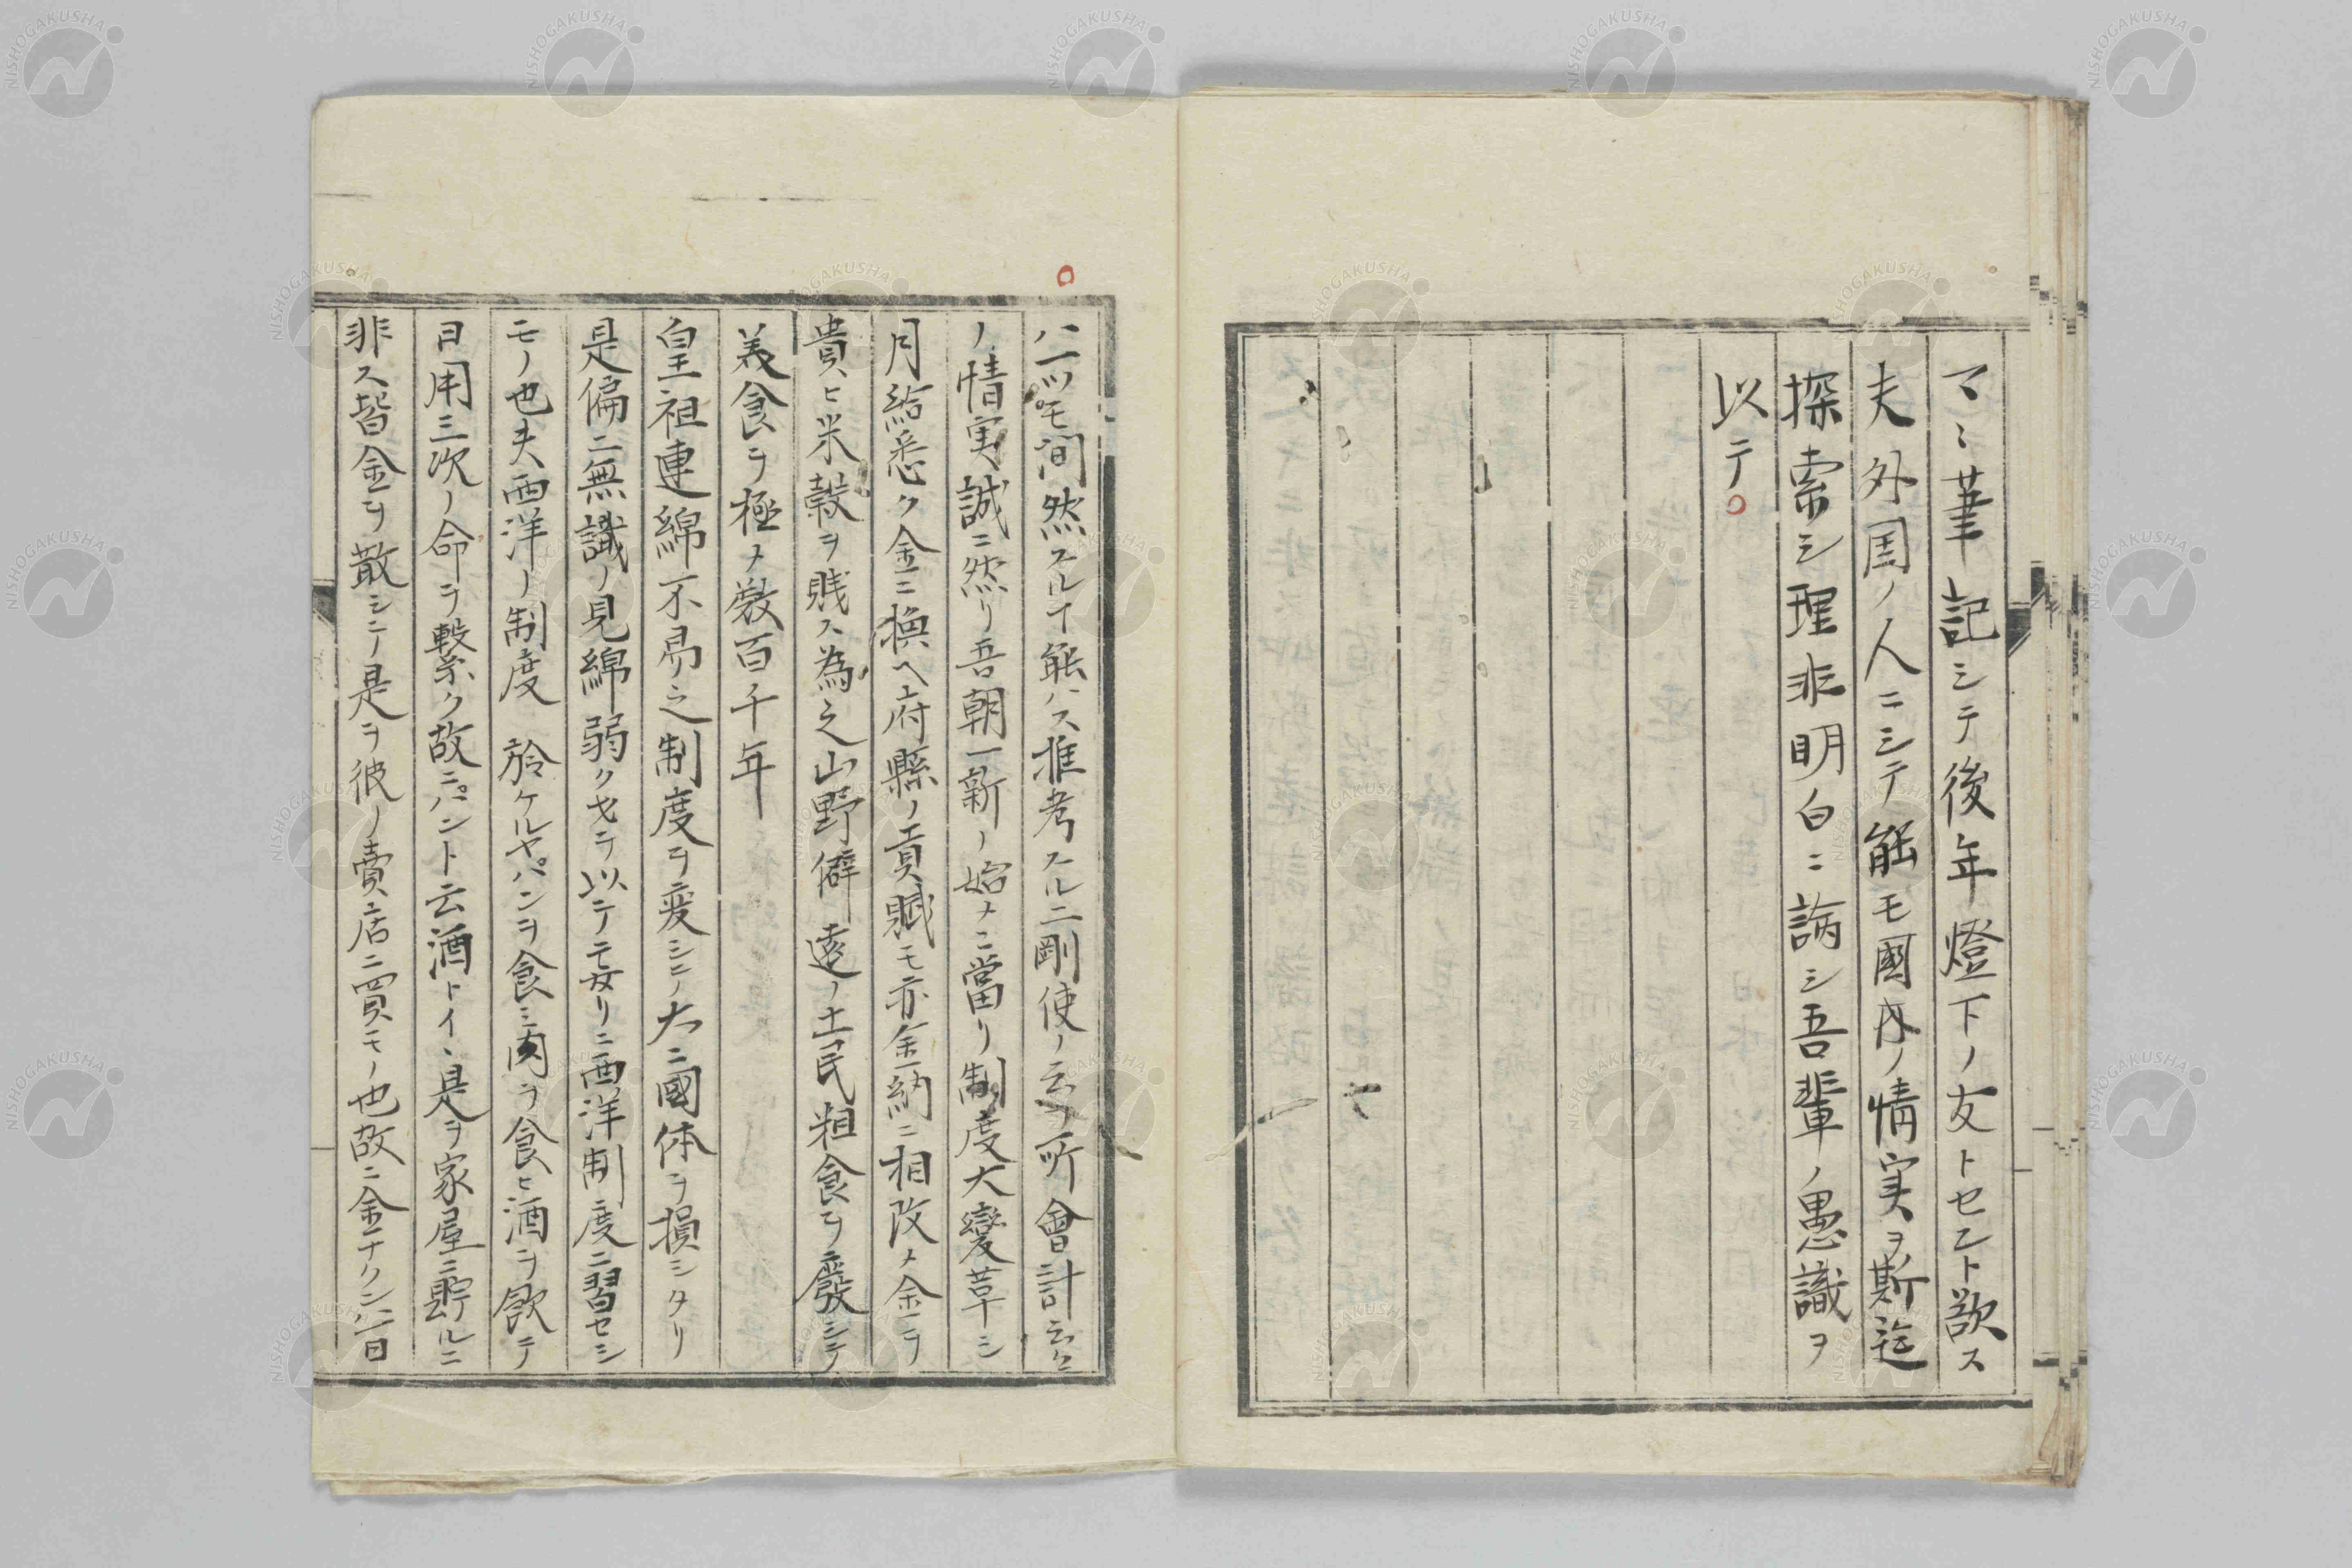 マヽ筆記シテ後年燈下ノ友トセント欲ス
夫外国ノ人ニシテ能モ國内ノ情実ヲ斯迄
探索シ理非明白ニ論シ吾輩ノ愚識ヲ
以テ
ハ一ツモ间然スルヿ能ハス推考スルニ剛使ノ云フ所會計云々
ノ情実誠ニ然リ吾朝一新ノ始メニ當リ制度大變革シ
月給悉ク金ニ換ヘ府縣ノ貢賦モ亦金納ニ相改メ金ヲ
貴ヒ米穀ヲ賎ス為之山野僻遠ノ土民粗食ヲ廢シテ
美食ヲ極メ数百千年
皇祖連綿不易之制度ヲ変シテ大ニ國体ヲ損シタリ
是偏ニ無識ノ見綿弱ク戈ヲ以テモ妄リニ西洋制度ニ習セシ
モノ也夫西洋ノ制度於ケルヤパンヲ食ミ肉ヲ食ヒ酒ヲ飲テ
日用三次ノ命ヲ繋ク故ニパント云酒トイヽ是ヲ家屋ニ貯ルニ
非ス皆金ヲ散シテ是ヲ彼ノ賣店ニ買モノ也故ニ金ナクンハ一日
NISHOGAKUSHA